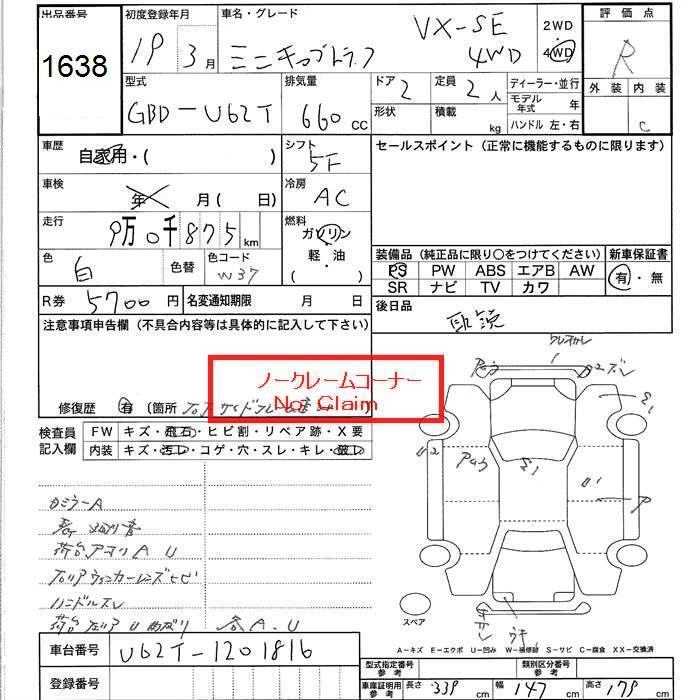 出品番号 初度登録年月 車名・グレード 評価点
1638 19 3月 ミニキャブトラック VX-SE 4WD 2WD 4WD R
外装 内装 C
型式 排気量 ドア 定員 ディーラー・並行
GBD-U62T 660cc 2 2人 モデル年式 年
形状 積載 kg ハンドル 左・右
車歴 自家用・( ) シフト 5F セールスポイント (正常に機能するものに限ります)
車検 年 月( 日) 冷房 AC
走行 9万0千875km 燃料 ガソリン 軽油 ・( )
色 白 色替 色コード W37
装備品 (純正品に限り○をつけてください) 新車保証書
PS PW ABS エアB AW 有・無
SR ナビ TV カワ
R券 5700円 名変通知期限 月 日 後日品
注意事項申告欄 (不具合内容等は具体的に記入して下さい) 取説
ノークレームコーナー
Not Claim
修復歴 有 (箇所
検査員記入欄 FW キズ・飛石・ヒビ割・リペア跡・X要
内装 キズ・汚レ・コゲ・穴・スレ・キレ・破レ
カミラーA
荷台アオリA U
ハンドルスレ
各A.U
スペア
A-キズ E-エクボ U-凹み W-補修跡 S-サビ C-腐食 XX-交換済
車台番号 U62T-1201816
型式指定番号 参考 類別区分番号 参考
登録番号 車庫証明用 参考 長さ 339cm 幅 147cm 高さ 179cm